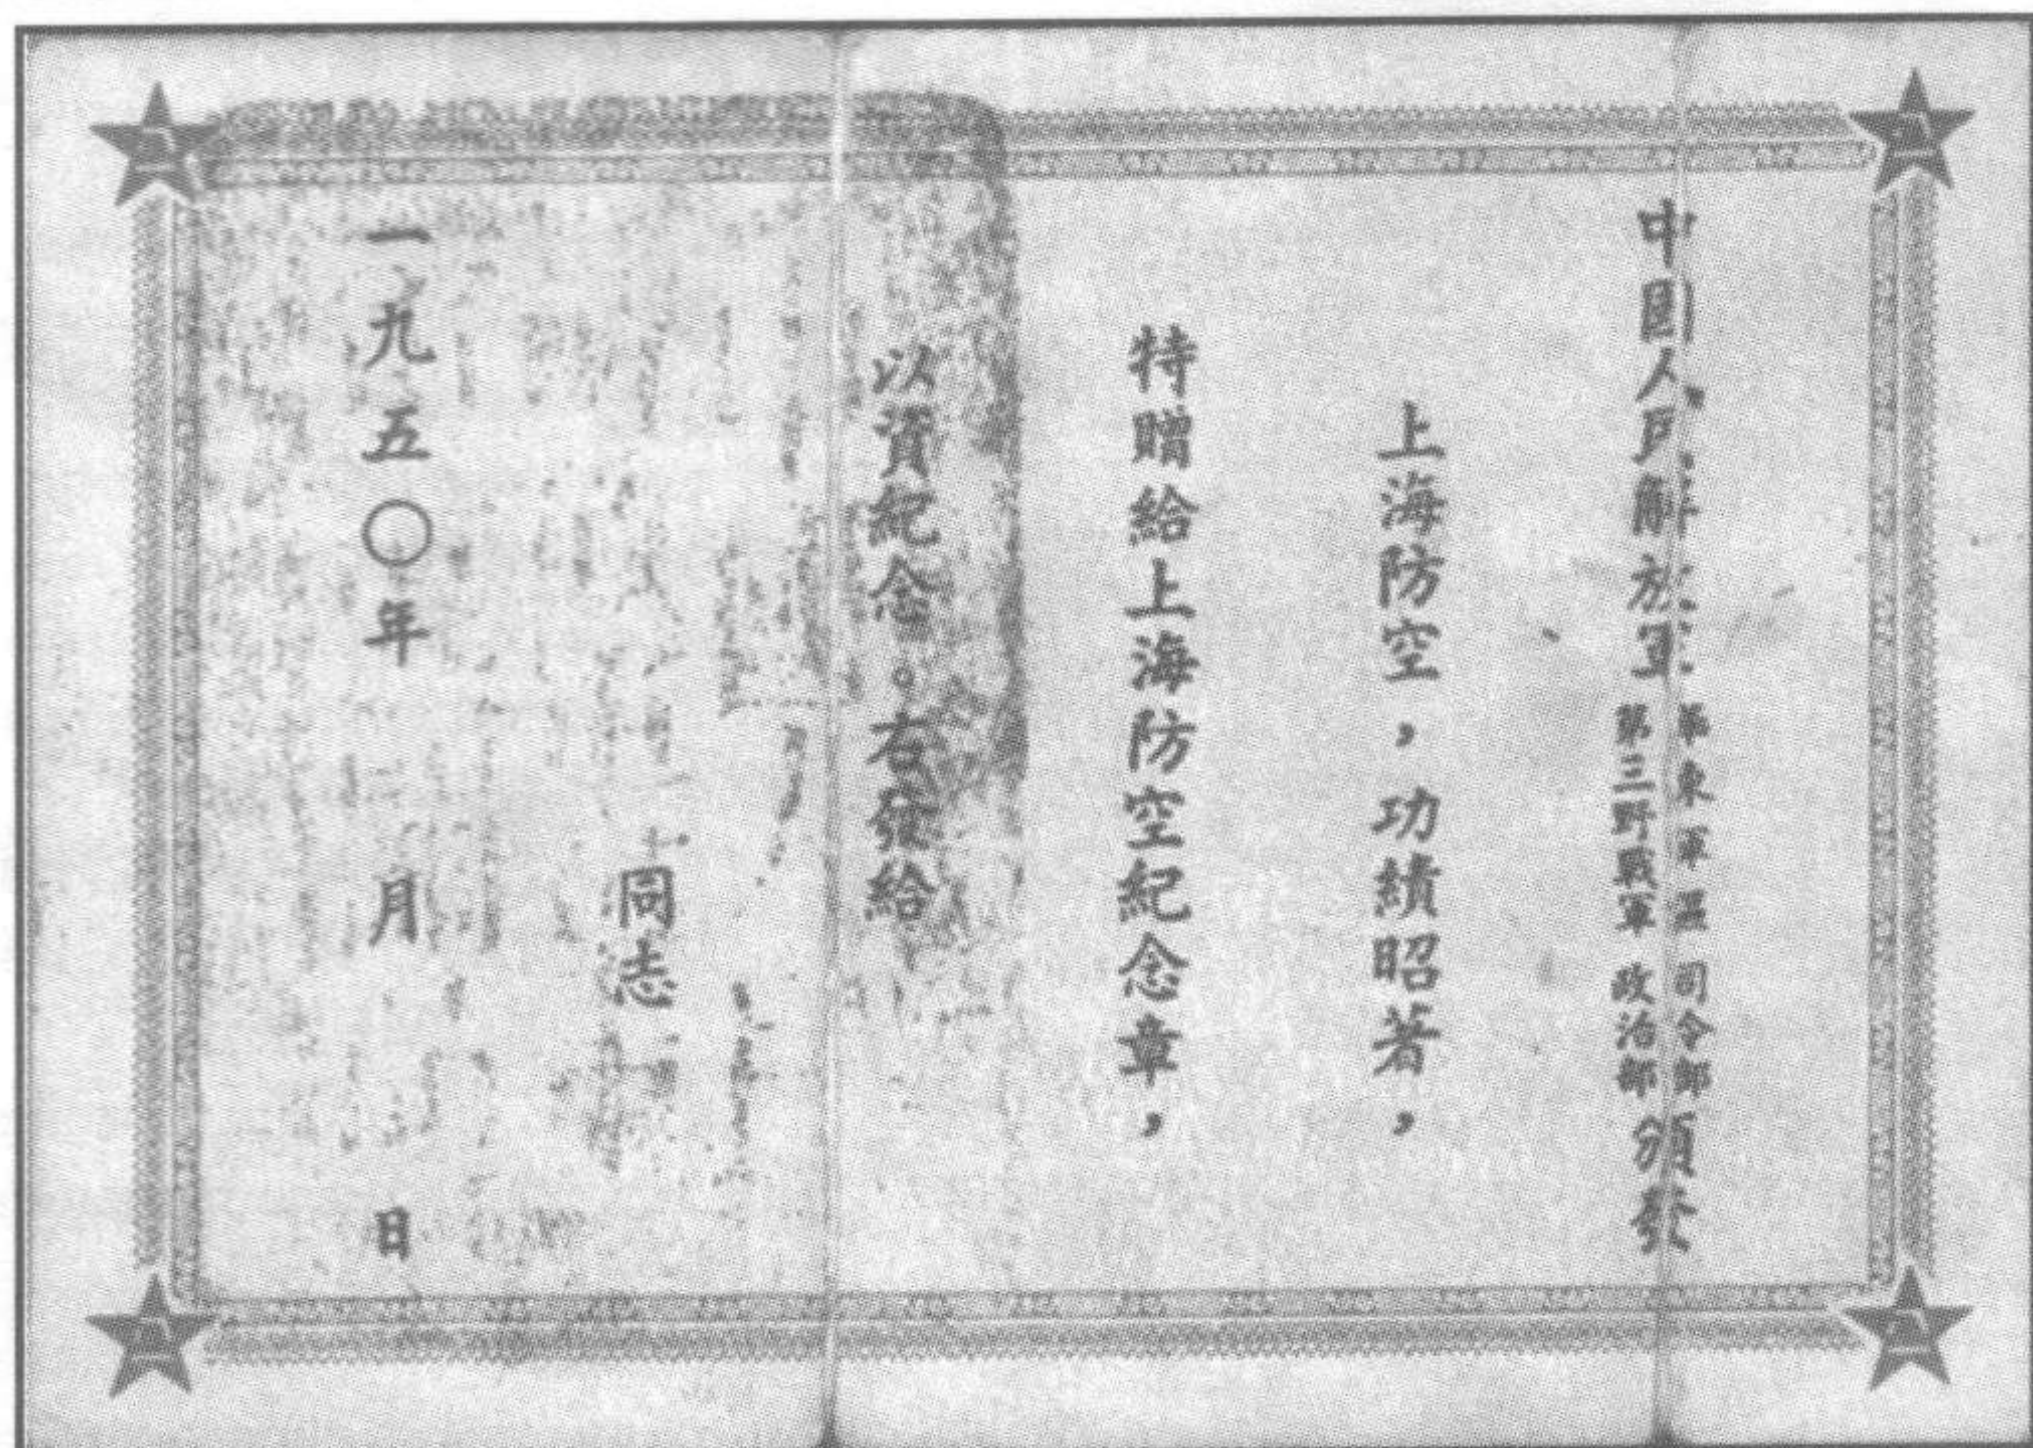 中國人民解放軍 華東軍區 司令部
第三野戰軍 政治部 頒發
上海防空，功績昭著，
特贈給上海防空紀念章，
以資紀念。右發給
同志
一九五〇年 月 日